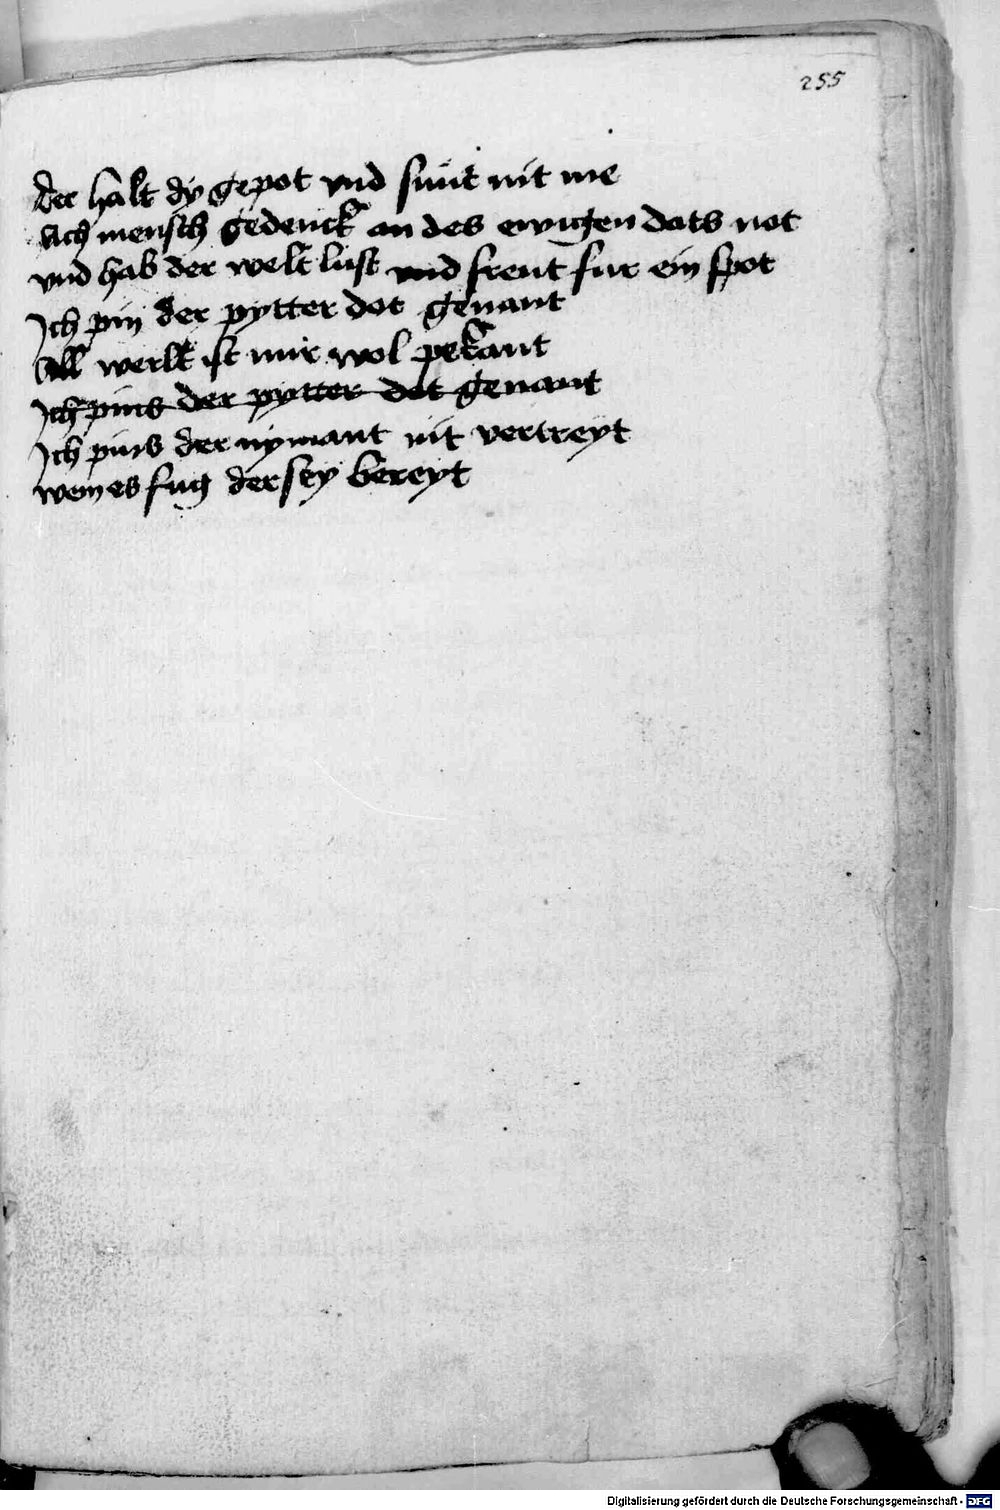 255
der halt dy gepot vnd sunt nit me
Ach mensch gedenck an des ewigen dots not
vnd hab der welt lust vnd freut fur ein spot
Ich pin der pytter dot genant
All werlt ist mir wol pekant
Ich pins der pytter dot genant
Ich pins der nymant nit vertreyt
wem es fug der sey bereyt
Digitalisierung gefördert durch die Deutsche Forschungsgemeinschaft - DFG